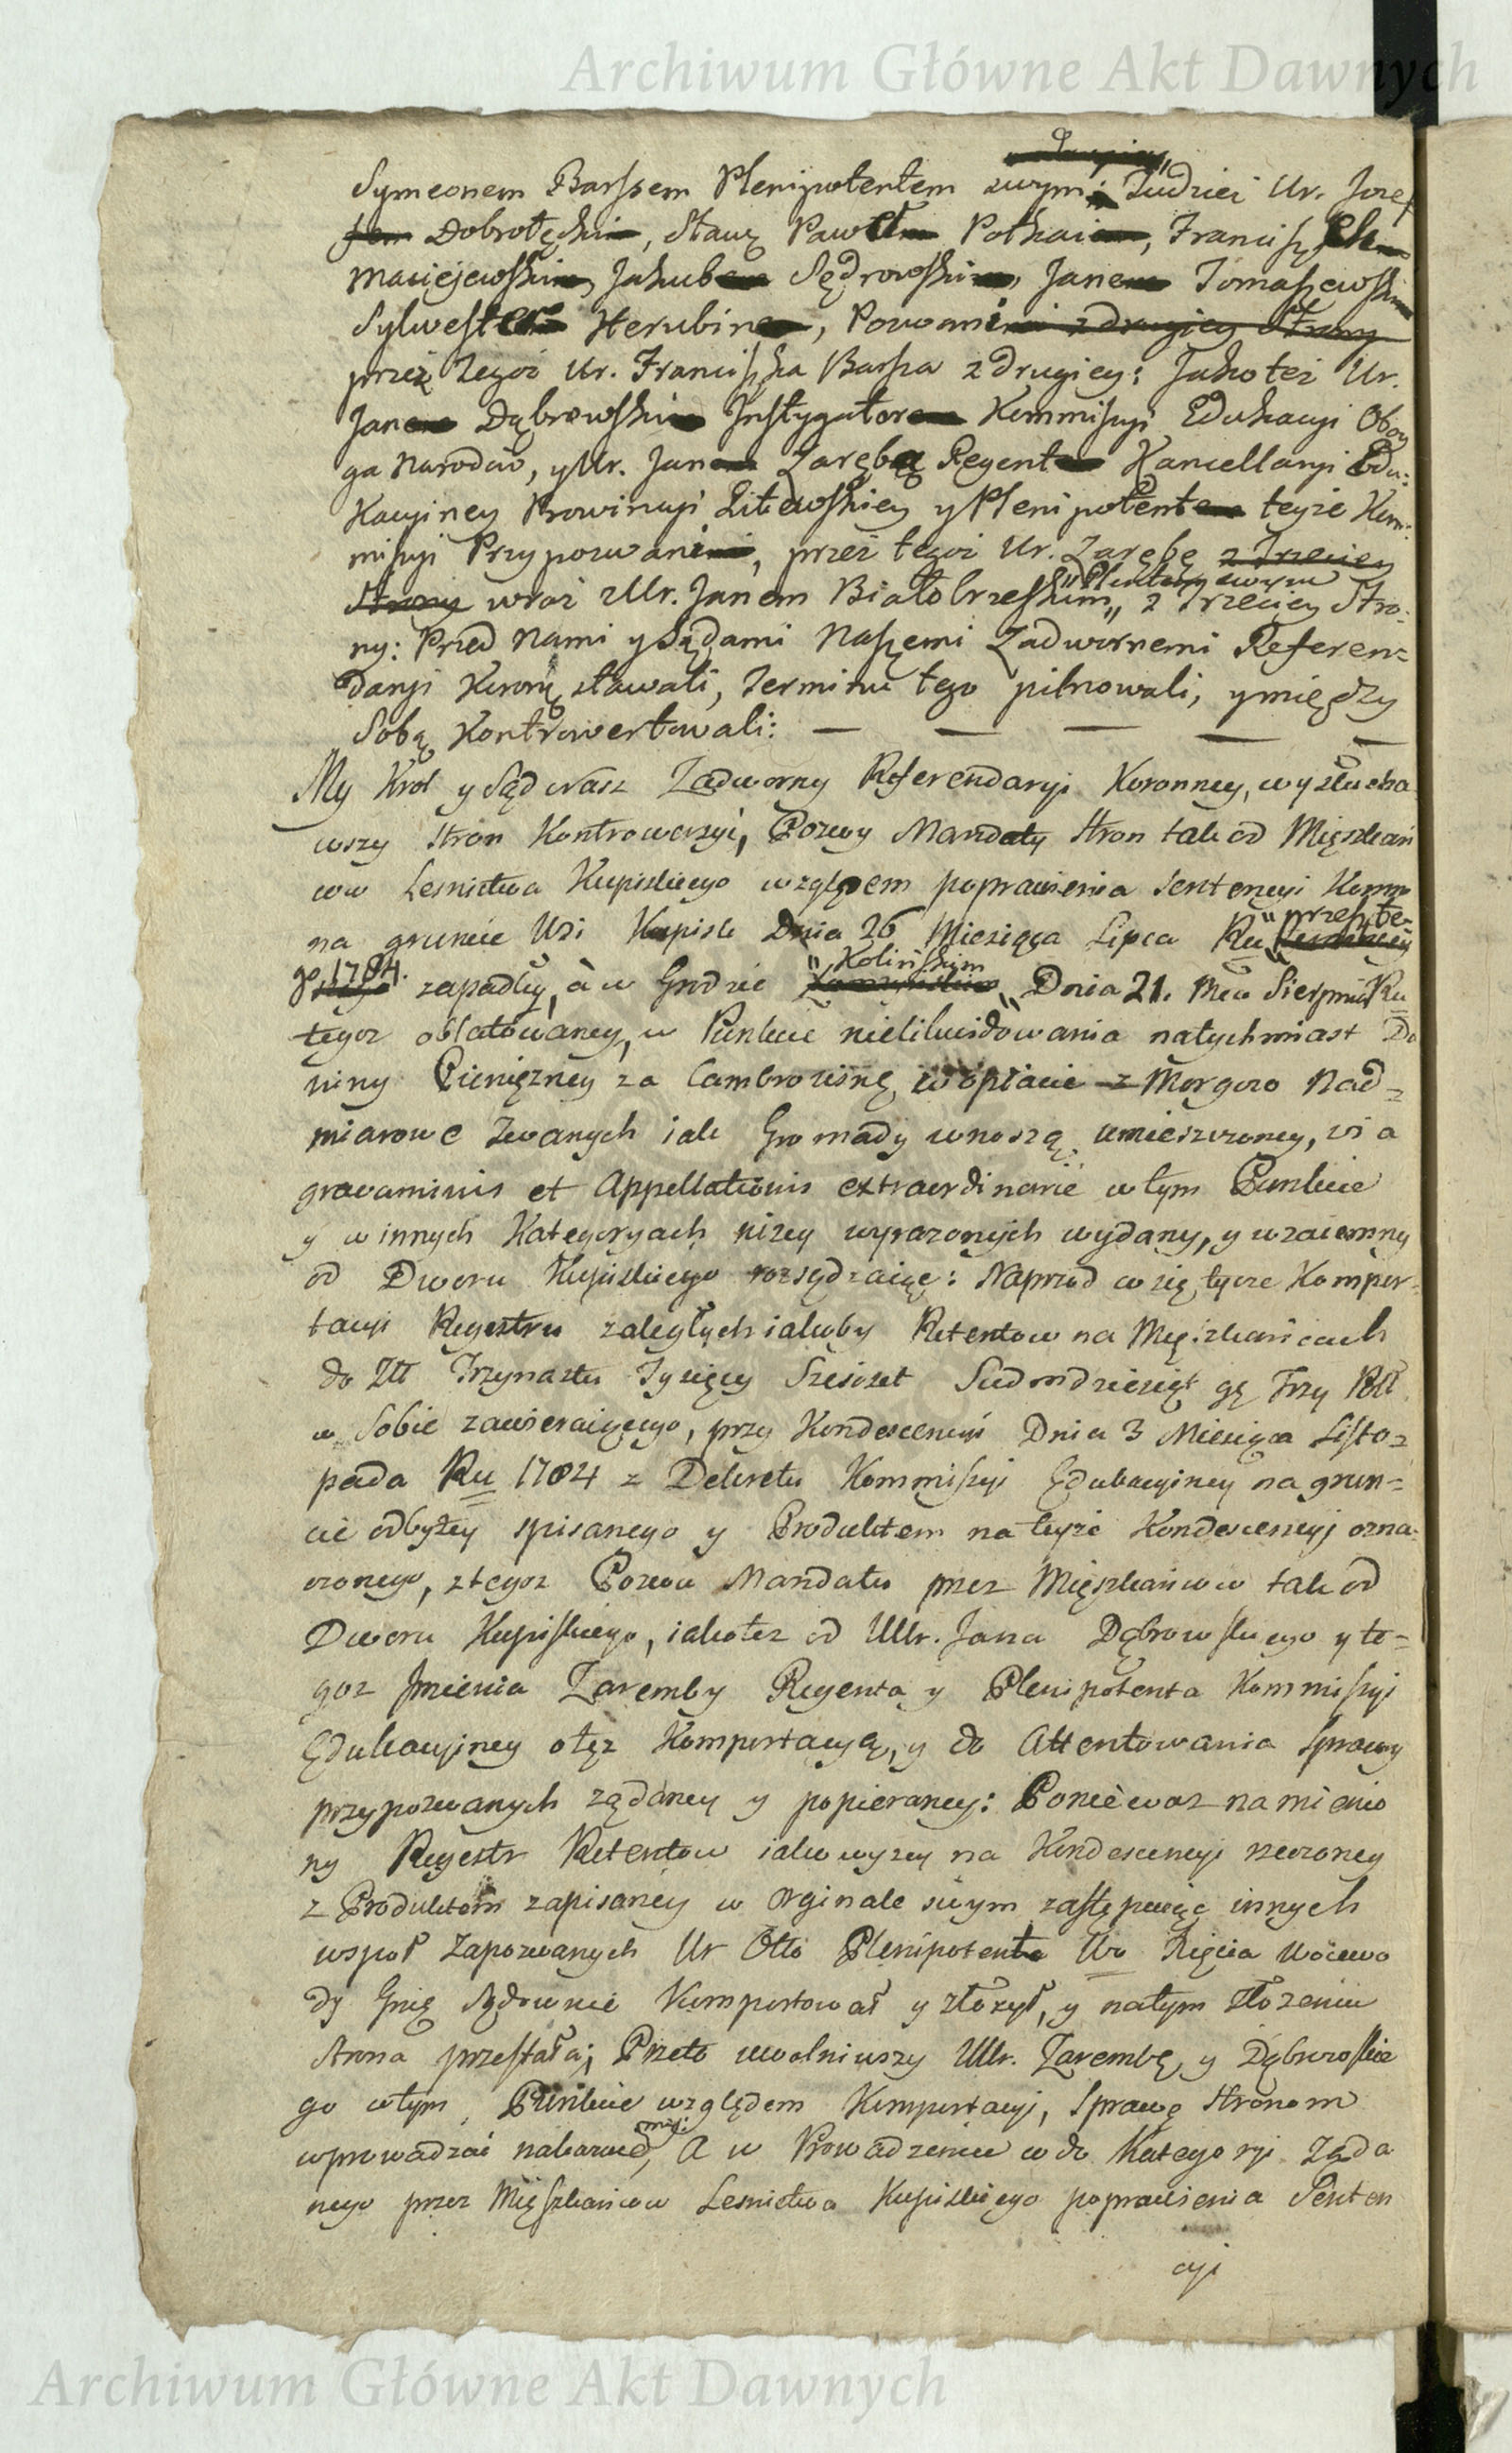 Archiwum Główne Akt Dawnych
Symeonem Barssem Plenipotentem swym; Tudzież Ur. Joze
Dobrołęcki, Stawę Paweł Potkai, Francisz
Maciejewski, Jakub Sędrowski, Jane Tomaszewski
Sylwester Herubin, Powani z drugiey Strony
przez tegoż Ur. Franciszka Barssa z drugiey: Jako też Ur.
Jan Dąbrowski Instygator Kommissyi Edukacyi Oboy
ga Narodów, y Ur. Jan Zaręba Regent Kancellaryi Edu:
kacyiney Prowincyi Litewskiey y Plenipotent teyże Kom:
missyi Przypozwani, przez tegoż Ur. Zarębę z Trzeciey
Strony wraz z Ur. Janem Białobrzeskim " Plentem swym " z Trzeciey Stro-
ny: Przed Nami y Sądami Naszemi Zadwornemi Referen=
daryi Koronę stawali, Terminu tego pilnowali, y między
Sobą Kontrowertowali: — — — — —
My Krol y Sąd Nasz Zadworny Referendaryi Koronney, wysłucha
wszy Stron Kontrowersyi, Pozwy Mandaty Stron tak od Mięszkań
cow Lesnictwa Kupiskiego względem poprawienia Sentencyi Komm
na gruncie Wsi Kupisk Dnia 26 Miesiąca Lipca Ru " przesłe-
go 1784. zapadłey, a w Grodzie " Kolinskim " Dnia 21. Mca Sierpnia Ru
tegoz oblatowaney, w Punkcie nielikwidowania natychmiast Da
niny Pieniężney za Cambrowisnę, w opłacie z Morgow Nad=
miarowe zwanych iak Gromady wnoszą umieszczoney, via
gravaminis et Appellationis extraordinarie w tym Punkcie
y w innych Kategoryach niżey wyrazonych wydany, y wzaiemny
od Dworu Kupiskiego rozsądzaiąc: Naprzod co się tycze Kompor-
tacyi Regestru zaległych iakoby Retentow na Mięszkańcach
do Złł Trzynastu Tysięcy Szesciset Siedmdziesiąt gę Trzy Poll
w Sobie zawieraiącego, przy Kondescencyi Dnia 3 Miesiąca Listo=
pada Ru 1784 z Dekretu Kommissyi Edukacyiney na grun=
cie odbyłey spisanego y Produktem na teyże Kondescencyi ozna-
czonego, z tegoz Pozwu Mandatu przez Mięszkańcow tak od
Dworu Kupiskiego, iakotez od UUr. Jana Dąbrowskiego y te=
goz Imienia Zaremby Regenta y Plenipotenta Kommissyi
Edukacyiney o tęz Komportacyą, y do Attentowania Sprawy
przypozwanych żądaney y popieraney: Poniewaz namienio
ny Regestr Retentow iako wyzey na Kondescencyi rzeczoney
z Produktem zapisaney w Orginale swym zastępuiąc innych
wspoł Zapozwanych Ur Otto Plenipotent Wo Xięcia Woiewo
dy Gnię Sądownie Komportował y złożył, y na tym złożeniu
Strona przestała; Przeto uwolniwszy UUr. Zarembę, y Dąbrowskie
go w tym Punkcie względem Komportacyi, Sprawę Stronom
wprowadzać nakazuiemy: A w Prowadzeniu co do Kategoryi Żąda
nego przez Mięszkańcow Lesnictwa Kupiskiego poprawienia Senten
cyi
Archiwum Główne Akt Dawnych